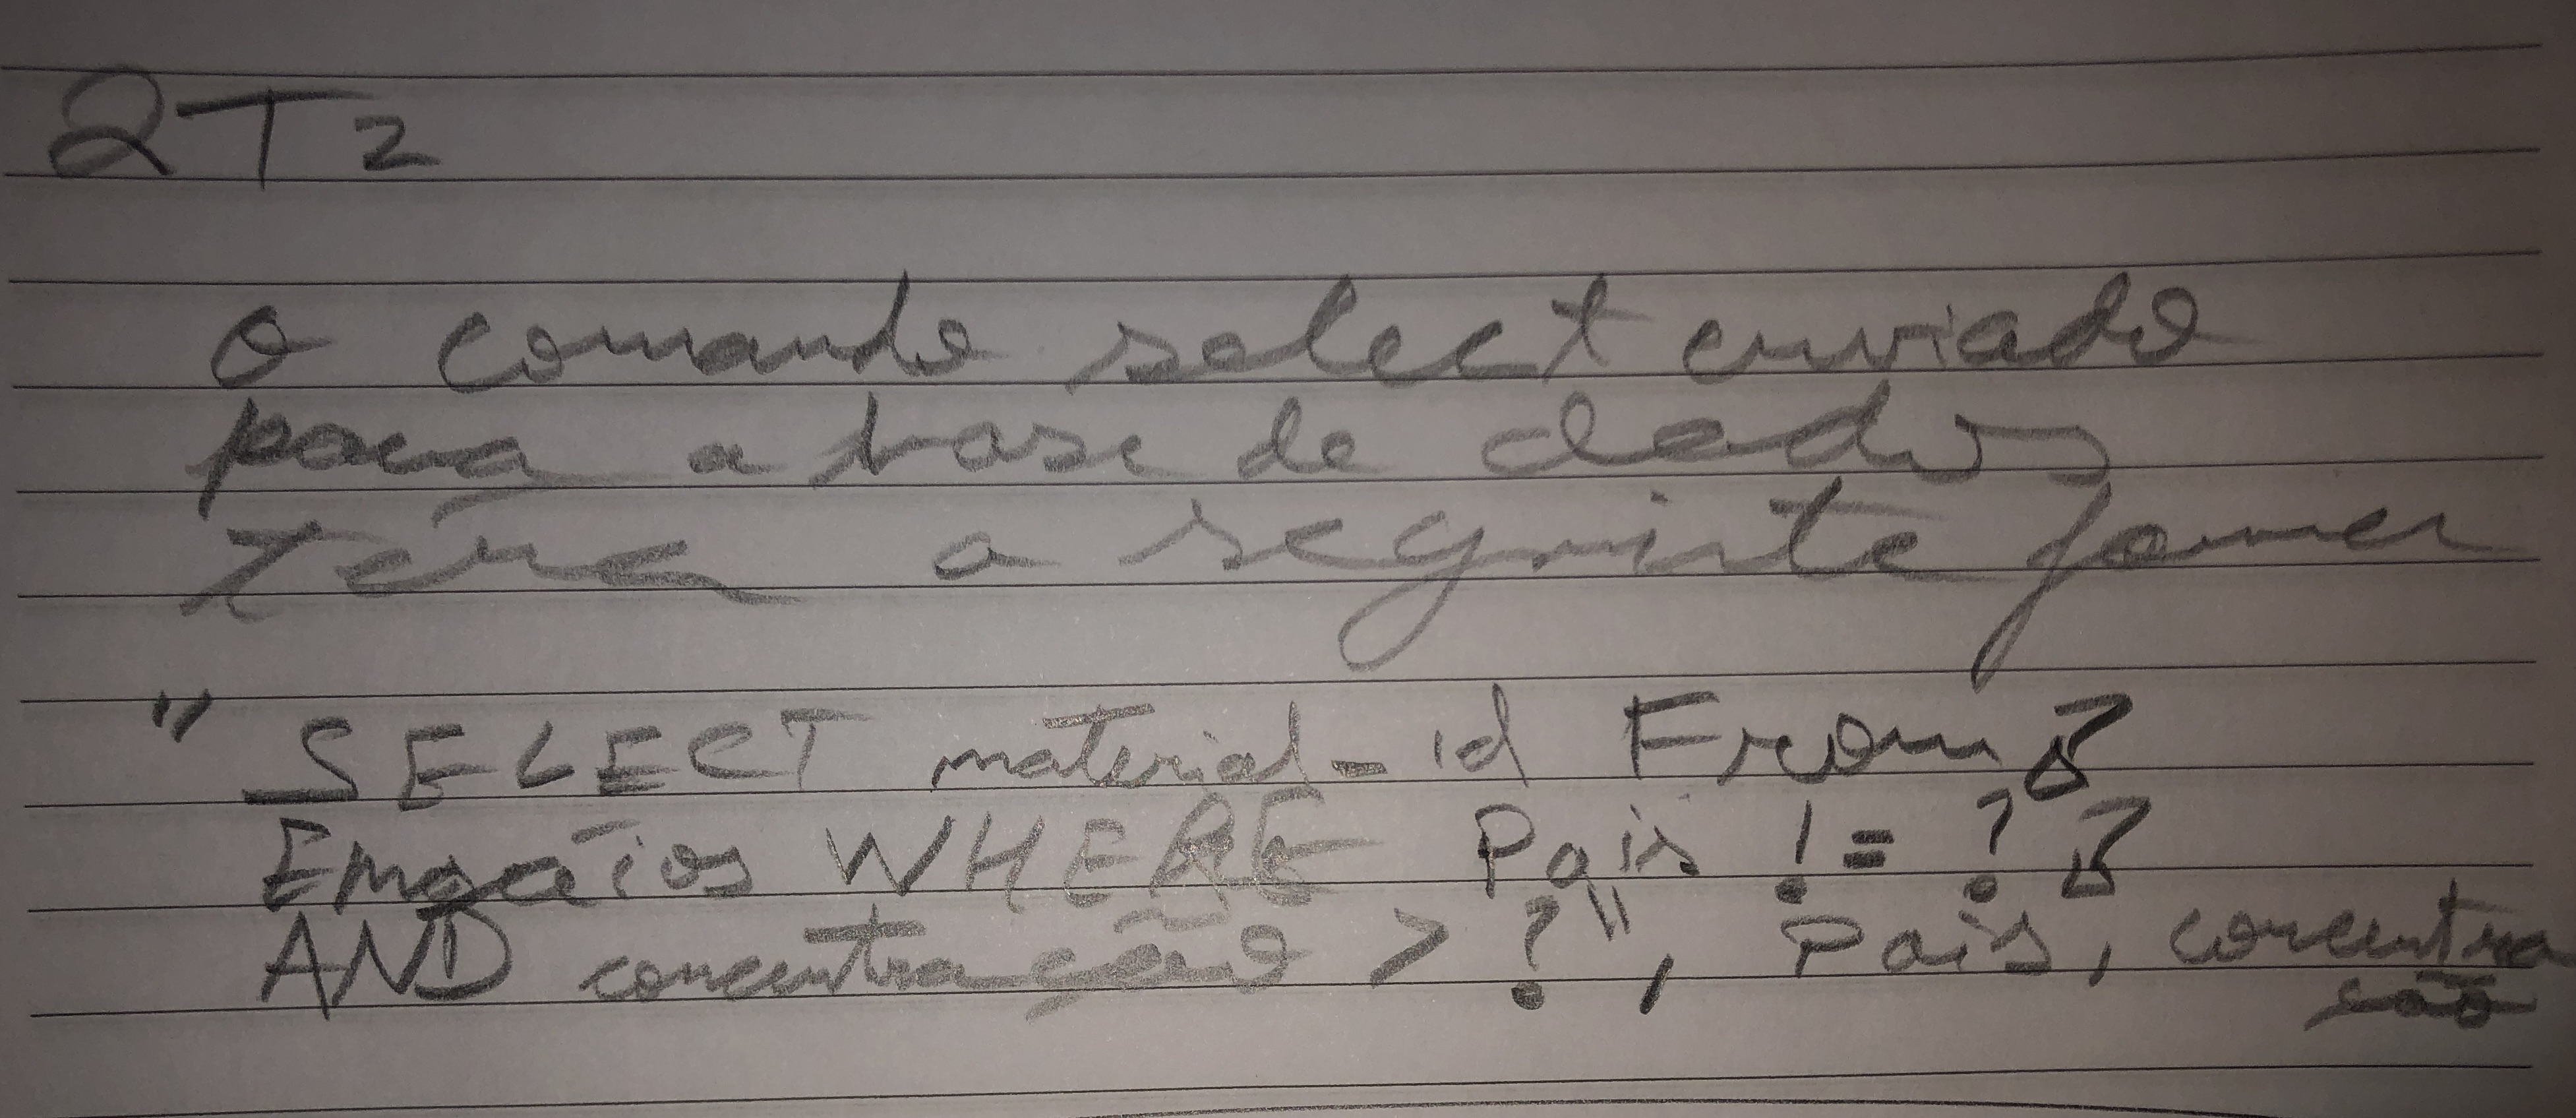 QT2
o comando select enviado
para a base de dados
terá a seguinte forma
" SELECT material-id From
WHERE Pais != ?
AND concentração > ?", Pais, concentra
ção